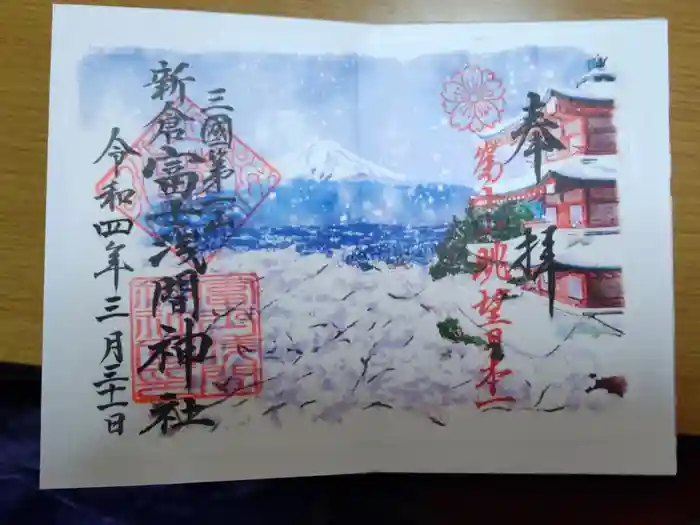 奉拝
富士山眺望日本一
三國第一山
新倉富士浅間神社
令和四年三月三十一日